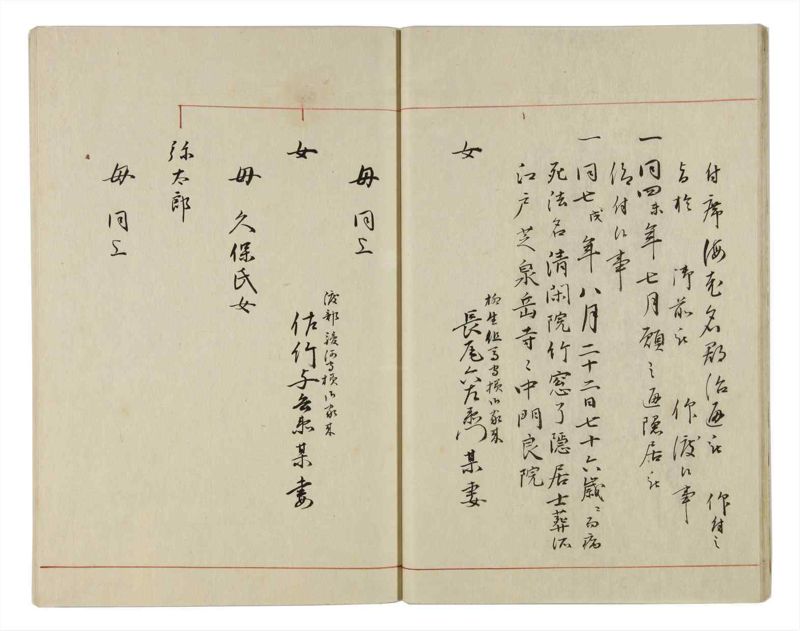 付席海尭名郡治 被 仰付之
於 御前 被 仰渡候事
一同四未年七月願之通隠居被
仰付候事
一同七戌年八月二十二日七十六歳ニ而病
死法名清閑院竹窓了隠居士葬所
江戸芝泉岳寺ニ中門良院
女
柳生但馬守様御家来
長尾六左衛門某妻
母同上
女
渡部後河守様御家来
佐竹与兵衛某妻
母久保氏女
弥太郎
母同上